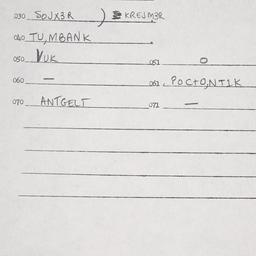 030 SOJX3R ) KREJM3R
040 TU,MBANK
050 VUK 051 O
060 — 061 POCTO,NTIK
070 ANTGELT 071 —